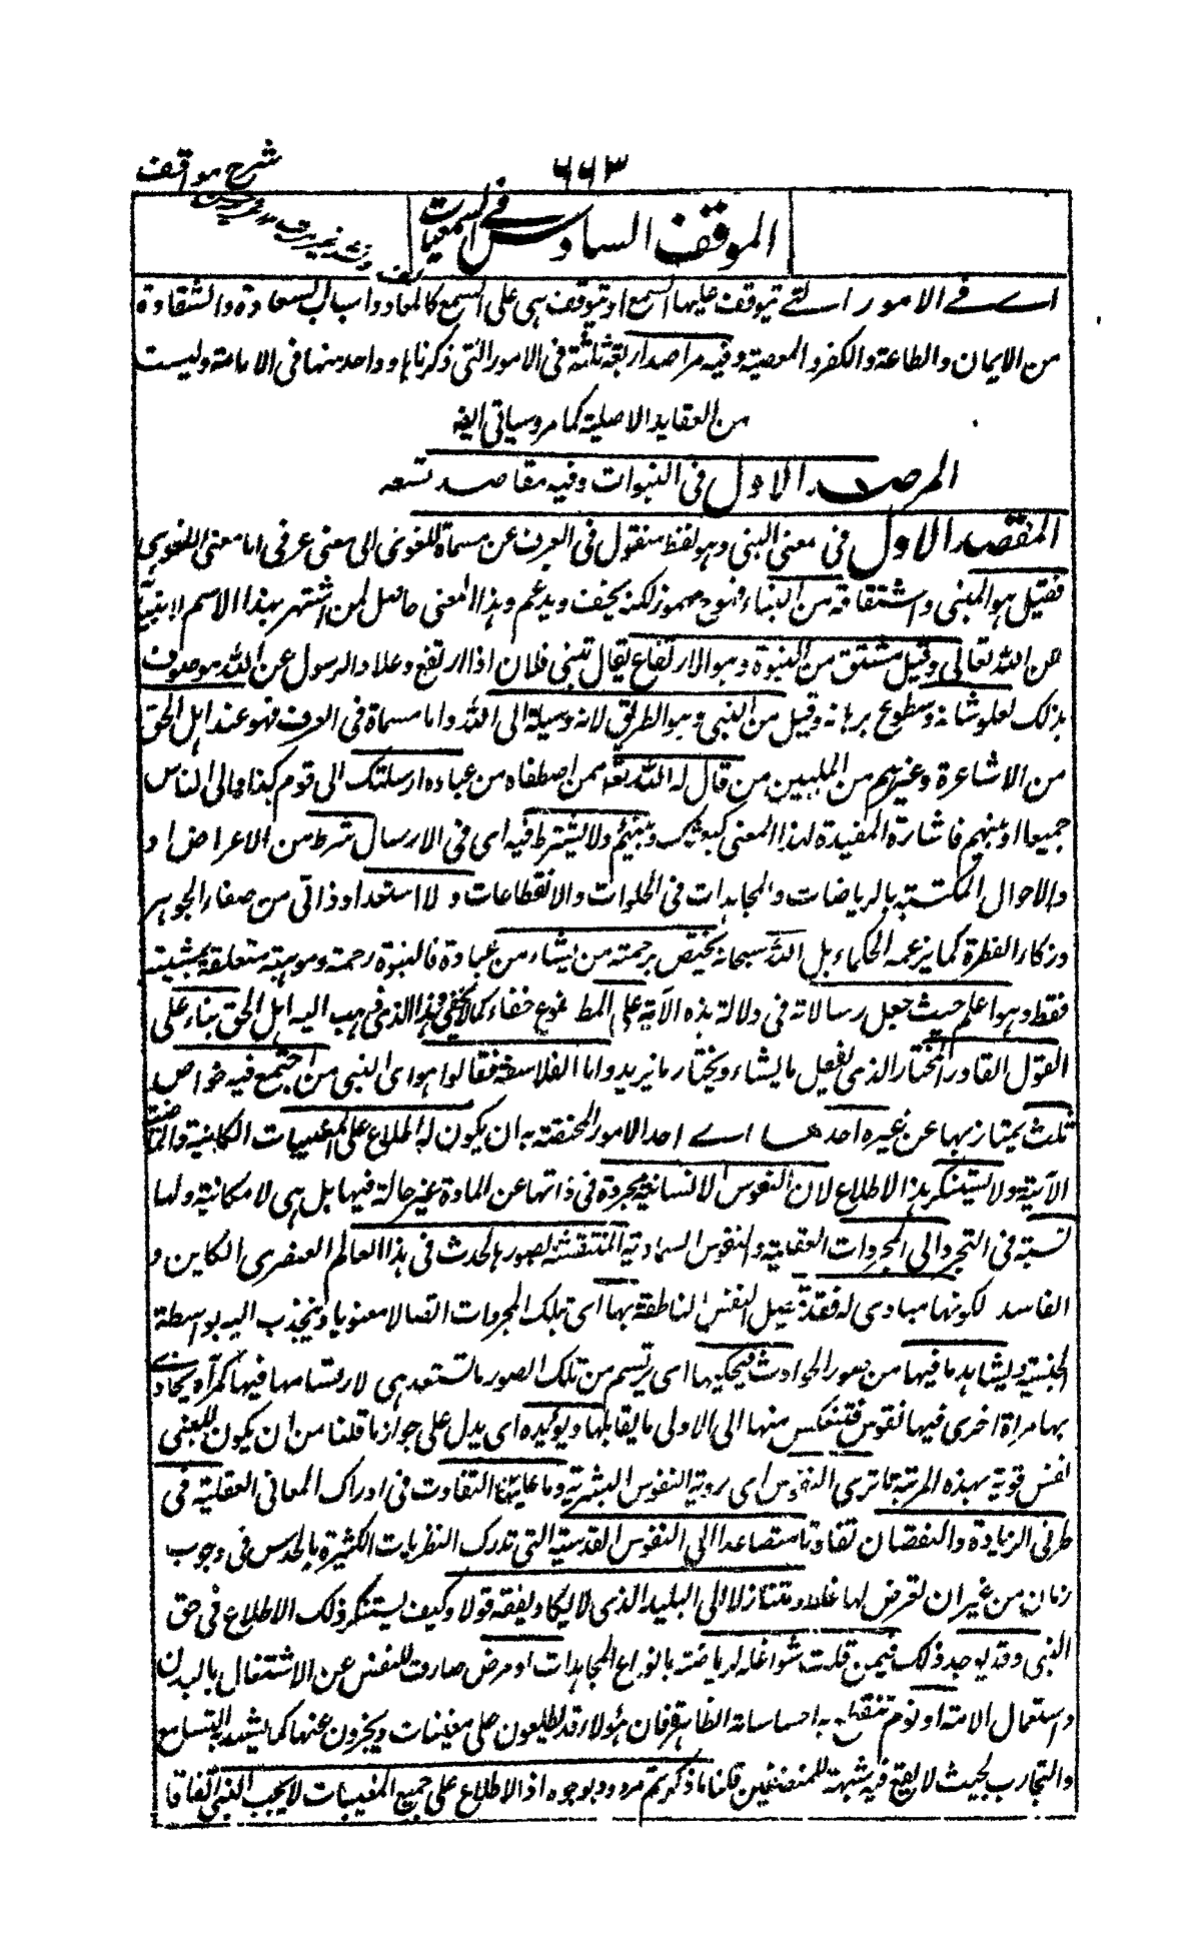 شرح مواقف
٦٦٣
الموقف السادس في السمعيات
اے فے الامور التے يتوقف عليها السمع او يتوقف هي على السمع كالمعاد واسباب السعادة والشقاوة
من الايمان والطاعة والكفر والمعصية وفيه مراصد اربعة ثلثة في الامور التي ذكرناها وواحد منها في الامامة وليست
من العقايد الاصلية كما مر وسياتي ايضا
المرصد الاول في النبوات وفيه مقاصد تسعه
المقصد الاول في معنى النبي وهو لفظ منقول في العرف عن مسماه اللغوي الى معنى عرفي اما معنى اللغوي
فقيل هو المنبي واشتقاقه من النباء فهو مهموز لكنه يخفف ويدغم وهذا المعنى حاصل لمن اشتهر بهذا الاسم لانبائه
عن الله تعالى وقيل مشتق من النبوة وهو الارتفاع يقال تنبى فلان اذا ارتفع وعلا والرسول عن الله موصوف
بذلك لعلو شانه وسطوع برهانه وقيل من النبي وهو الطريق لانه وسيلة الى الله واما مسماه في العرف فهو عند اهل الحق
من الاشاعرة وغيرهم من المليين من قال له الله تعه ممن اصطفاه من عباده ارسلتك الى قوم كذا والى الناس
جميعا او بلغهم عني ونحوه من الالفاظ المفيدة لهذا المعنى كبعثتك ونبئهم ولا يشترط فيه اى في الارسال شرط من الاعراض و
والاحوال المكتسبة بالرياضات والمجاهدات في الخلوات والانقطاعات ولا استعداد ذاتي من صفاء الجوهر
وذكاء الفطرة كما يزعمه الحكماء بل الله سبحانه يختص برحمته من يشاء من عباده فالنبوة رحمة وموهبة متعلقة بمشيته
فقط وهو اعلم حيث يجعل رسالاته في دلالة هذه الآية على المط نوع خفاء كما لا يخفى وهذا الذي ذهب اليه اهل الحق بناء على
القول القادر المختار الذي يفعل ما يشاء ويختار ما يريد واما الفلاسفة فقالوا هو اى النبي من اجتمع فيه خواص
ثلث يمتاز بها عن غيره احدها اے احد الامور المختصة به ان يكون له اطلاع على المغيبات الكاينة والماضية
الآتية ولا يستنكر هذا الاطلاع لان النفوس الانسانية مجردة في ذاتها عن المادة غير حالة فيها بل هي لامكانية ولها
نسبة في التجرد الى المجردات العقلية والنفوس السماوية المنتقشة بصور ما يحدث في هذا العالم العنصري الكاين و
الفاسد لكونها مبادي له فقد يتصل النفس الناطقة بها اى بتلك المجردات اتصالا معنويا وينجذب اليه بواسطة
الجنسية ويشاهد ما فيها من صور الحوادث فيحكيها اى يرتسم من تلك الصور ما تستعد هي لارتسامها فيها كمرآة يحاذے
بها مرآة اخرى فيها نقوش فتنعكس منها الى الاولى ما يقابلها ويؤيده اى يدل على جواز ما قلنا من ان يكون للنبي
نفس قوية بهذه المرتبة ما ترى النفوس اى روية النفوس البشرية وما عليها التفاوت في ادراك المعاني العقلية في
طرفي الزيادة والنقصان تفاوتا متصاعدا الى النفوس القدسية التي تدرك النظريات الكثيرة بالحدس في وجوب
زمان من غير ان تعرض لها غلط ومتنازلا الى البليد الذي لا يكاد يفقه قولا وكيف يستنكر ذلك الاطلاع في حق
النبي وقد يوجد ذلك فيمن قلت شواغله لرياضته بانواع المجاهدات او مرض صارف للنفس عن الاشتغال بالبدن
واستعمال الالة او نوم تنقطع به احساساته الظاهرة فان هؤلاء قد يطلعون على مغيبات ويخبرون عنها كما يشهد به التسامع
والتجارب بحيث لا يبقى فيه شبهة للمنصفين قلنا ما ذكرتم مردود بوجوه اذ الاطلاع على جميع المغيبات لا يجب للنبي اتفاقا